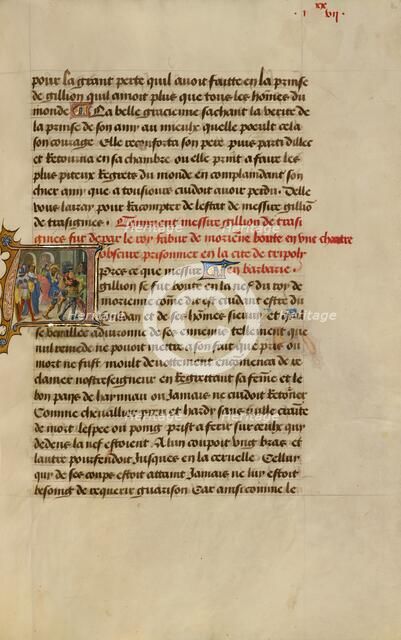 xx
.i. vii.
pour la grant perte quil auoit faitte en la prinse
de gillion quil amoit plus que tous les hommes du
monde La belle gracienne sachant la verite de
la prinse de son amy au mieulx quelle poeult cela
son courage Elle reconforta son pere puis parti dillec
et retourna en sa chambre ou elle prinst a faire les
plus piteux regretz du monde en complaindant son
chier amy que a tousiours cuidoit auoir perdu. Delle
vous lairay pour racompter de lestat de messire gillion
de trasignies. Comment messire gillion de trasi
gnies fut de par le roy fabur de moriene boute en vne chartre
obscure prisonnier en la cite de tripoly
en barbarie.
Pres ce que messire
gillion se fut boute en la nef du roy de
moriene
et de ses hommes
se veoit aduironne de ses ennemis tellement que
nul remede ne pouoit mettre a son fait que pris ou
mort ne fust moult deuottement encommenca de re
clamer nostreseigneur en regrettant sa femme et le
bon pays de haynnau ou Jamais ne cuidoit retourner
Comme cheuallier preu et hardy sans nulle crainte
de mort lespee ou poing prist a ferir sur ceulx quy
dedens la nef estoient A lun coupoit vng bras et
lautre pourfendoit Jusques en la ceruelle Celluy
quy de ses coups estoit attaint Jamais ne luy estoit
besoing de requerir guarison Car ainsi comme le
Heritage
Images